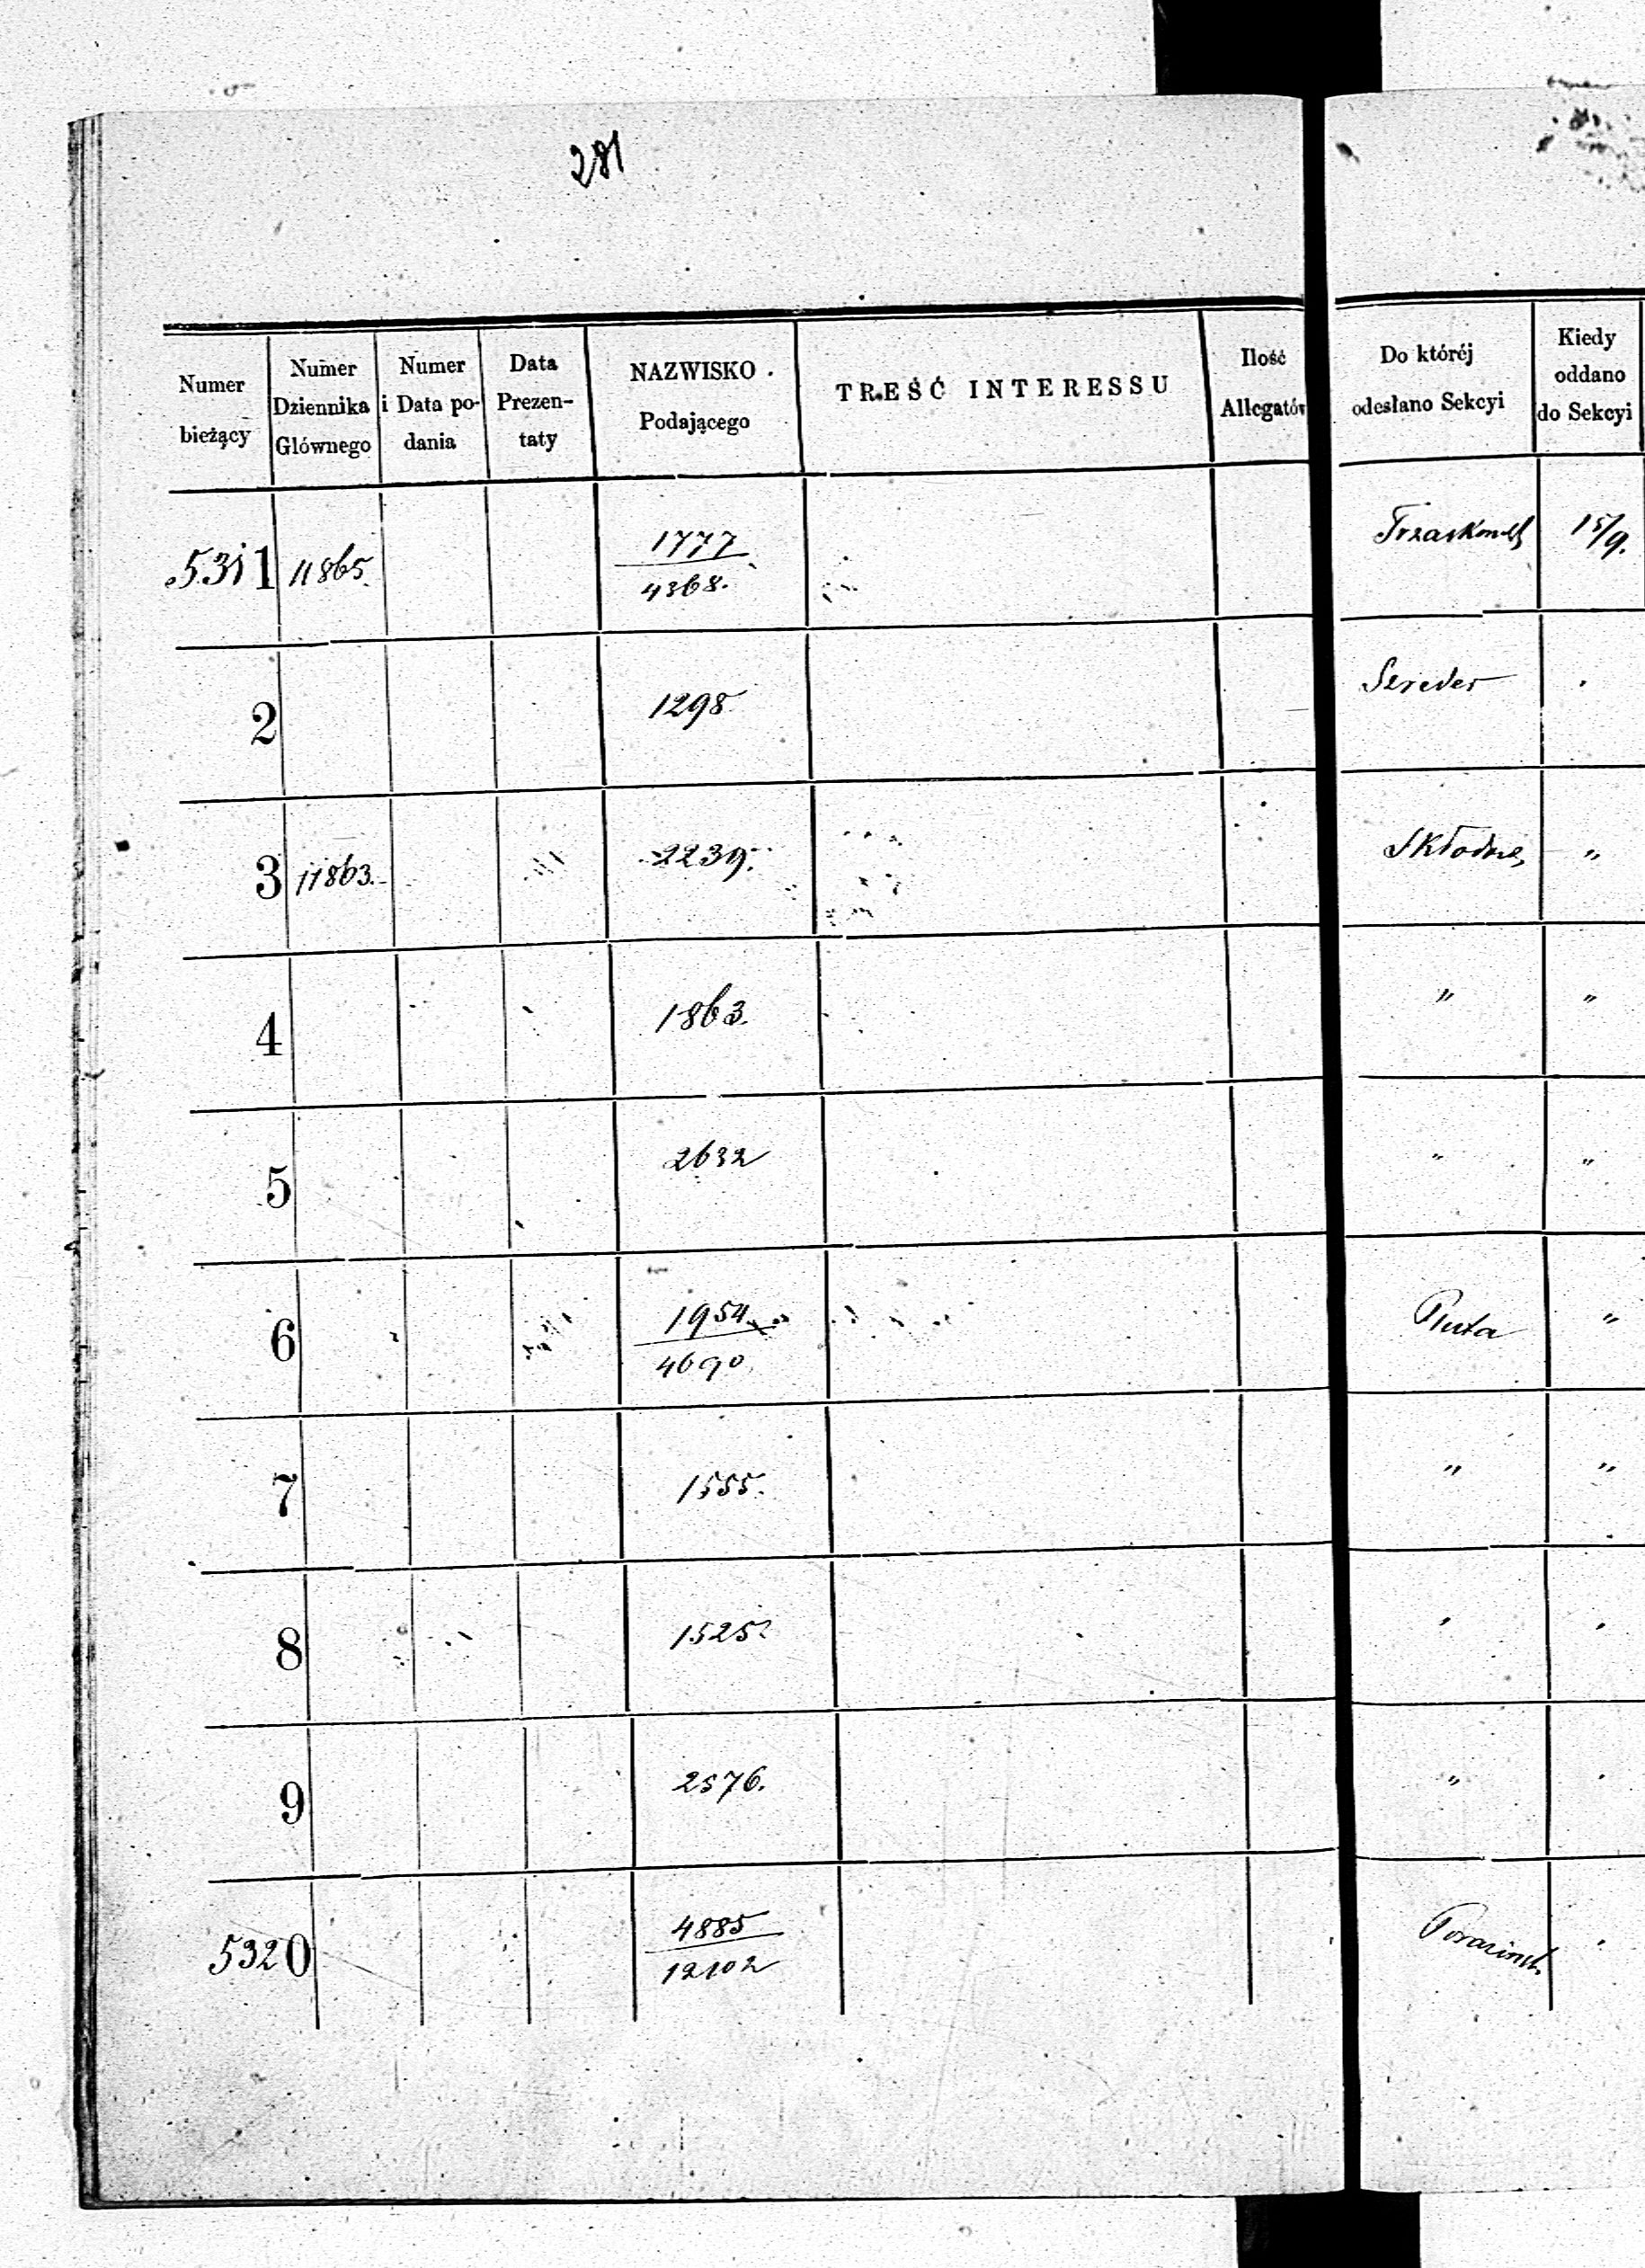 281
Numer bieżący
Numer Dziennika Głównego
Numer i Data podania
Data Prezentaty
NAZWISKO Podającego
TREŚĆ INTERESSU
Ilość Allegatów
Do któréj odesłano Sekcyi
Kiedy oddano do Sekcyi
5311 11865. 1777/4368. 15/9.
2 1298 Szreder
3 11863. 2239. "
4 1863. " "
5 2632 " "
6 1954/4690. Pluta "
7 1555. " "
8 1525. " "
9 2576. "
5320 4885/12102